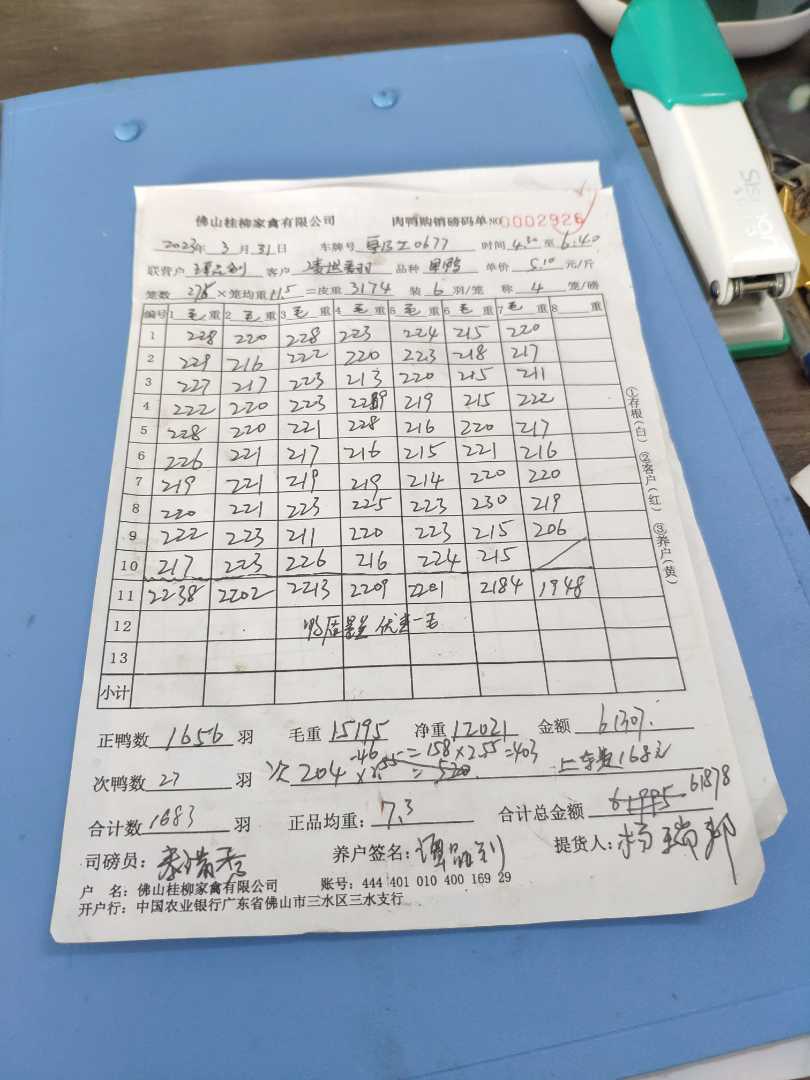 佛山桂柳家禽有限公司 肉鸭购销磅码单 NO 0002926
2023年 3月31日 车牌号 0677 时间 4.30 至 6.40
联营户 客户 品种 单价 5.10 元/斤
笼数 276 × 笼均重 11.5 = 皮重 3174 装 6 羽/笼 称 4 笼/磅
编号 1 毛 重 2 毛 重 3 毛 重 4 毛 重 5 毛 重 6 毛 重 7 毛 重 8 重
1 228 220 228 223 224 215 220
2 229 216 222 220 223 218 217
3 227 217 223 213 220 215 211
4 222 220 223 229 219 215 222
5 228 220 221 228 216 220 217
6 226 221 217 216 215 221 216
7 219 221 219 219 214 220 220
8 220 221 223 225 223 230 219
9 222 223 211 220 223 215 206
10 217 223 226 216 224 215
11 2238 2202 2213 2209 2201 2184 1948
12 优惠一毛
13
小计
①存根(白) ②客户(红) ③养户(黄)
正鸭数 1656 羽 毛重 15195 净重 12021 金额 61307.
次鸭数 27 羽 次 204 -46 = 158 × 2.55 = 403 上车费168元
× 2.55 = 520
合计数 1683 羽 正品均重: 7.3 合计总金额 61995 61878
司磅员: 养户签名: 提货人:
户 名: 佛山桂柳家禽有限公司 账号: 444 401 010 400 169 29
开户行: 中国农业银行广东省佛山市三水区三水支行